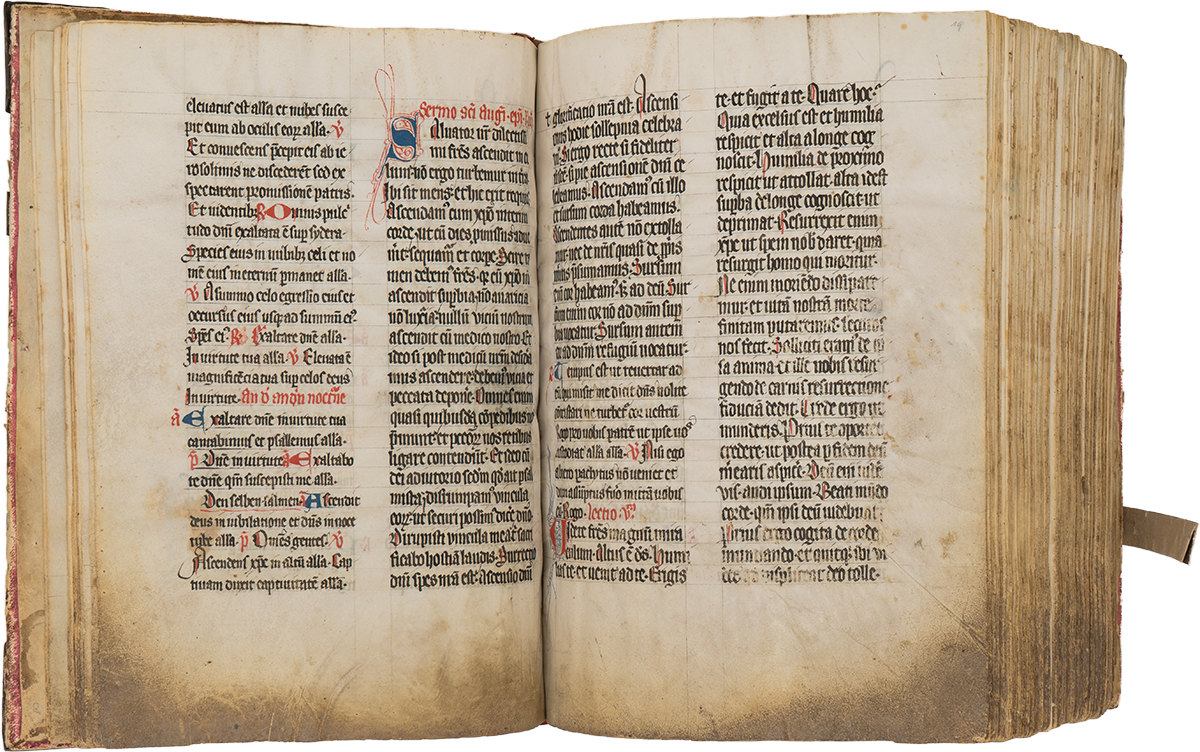 eleuatus est alla et nubes susce
pit eum ab oculis eorʒ alla. ℣
Et conuescens p̄cepit eis ab ie
rosolimis ne discederēt sed ex
spectarent promissionē patris.
Et uidentibʒ ℟ Omnis pulc̄
tudo dn̄i exaltata ē sup̄ sydera
Species eius in nubibʒ celi et no
mē eius in eternū p̄manet alla.
℣ A summo celo egressio eius et
occursus eius usqʒ ad summū eiꝰ.
Spēs eꝰ. ℟ Exaltare dn̄e alla.
In uirtute tua alla. ℣ Eleuata ē
magnificēcia tua sup celos deus
In uirtute.
Exaltare dn̄e in uirtute tua
cantabimus et psallemus alla.
p̄ Dn̄e in uirtute. Exaltabo
te dn̄e qm̄ suscepisti me alla.
Den selben salmen. Ascendit
deus in iubilatione et dn̄s in uoce
tube alla. p̄ Om̄es gentes. ℣
Ascendens xp̄c in altū alla. Cap
tiuam duxit captiuitatē alla.
Sermo sc̄i augꝰ. ep̄i.
Saluator nr̄ dilectissi
mi frēs ascendit in ce
lum. nō ergo turbemur in t̄ra.
Ibi sit mens. et hic erit requies
Ascendamꝰ cum xp̄o interim
corde. ut cū dies p̄missus adue
n̄it. sequamꝰ et corpe. Scire ta
men debemꝰ frēs. qʒ cū xp̄o nō
ascendit supbia. nō auaricia.
nō luxia. nullū viciū nostrum
ascendit cū medico nostro. Et
ideo si post medicū nr̄m deside
ramus ascendere. debemꝰ vicia et
peccata deponē. Omnes enim
quasi quibusdā cōpedibus nos
p̄munt. et peccorʒ nos retibus
ligare contendūt. Et ideo cū
dei adiutorio scdm qd̄ ait psal
mista. disrumpamꝰ vincula
eorʒ. ut securi possim dicē dn̄o
Dirupisti vincula mea. t̄ sacri
ficabo hostiā laudis. Surrectio
dn̄i spes nr̄a est. ascensio dn̄i
glorificatio nr̄a est. Ascensi
onis hodie sollepnia celebra
m̄. Si ergo recte si fideliter
si pie ascensionē dn̄i ce
lebramus. Ascendamꝰ cū illo
et sursum corda habeamus.
Ascendentes autē nō extolla
mur. nec de nr̄is quasi de p̄riis
meritis p̄sumamus. Sursum
enī cor habeamꝰ. sʒ ad deū. Sur
sum enim cor nō ad dn̄m supb
bia uocatur. Sursum autem
cor ad dn̄m refugiū uocatur.
Tempus est ut reuertar ad
eū qui misit me dicit dn̄s nolite
contristari ne turbet᷑ cor uestrū.
Rogo pro uobis patrē ut ipse uos
custodiat alla alla. ℣ Nisi ego
abiero paclytus nō ueniet et
dum assūptus fuo mittā uobis
eū. Rogo. lectio vꝰ
Uidete frēs magnū mira
culum. Altus ē dꝰs. Humi
lias te et uenit ad te. Erigis
te et fugit a te. Quare hoc.
Quia excelsus est et humilia
respicit et alta a longe cog
noscit. Humilia de proximo
respicit ut attollat. alta idest
supba de longe cognoscit ut
deprimat. Resurrexit enim
xp̄c ut spem nob̄ daret. quia
resurgit homo qui moritur.
Ne enim moriēdo dissipare
mur et uitā nostrā morte
finitam putaremus. securos
nos fecit. Solliciti eramꝰ de ip
sa anima. et ille nobis resur
gendo de carnis resurrectione
fiduciā dedit. Crede ergo ut
munderis. Prius te oportet
credere. ut postea p̄ fidem deū
mearis aspicē. Deū enī uidē
vis. audi ipsum. Beati mūdo
corde. qm̄ ipsi deū uidebunt.
Prius ergo cogita de corde
mundando. et quicqʒ ibi vi
des qd displiceat deo tolle.